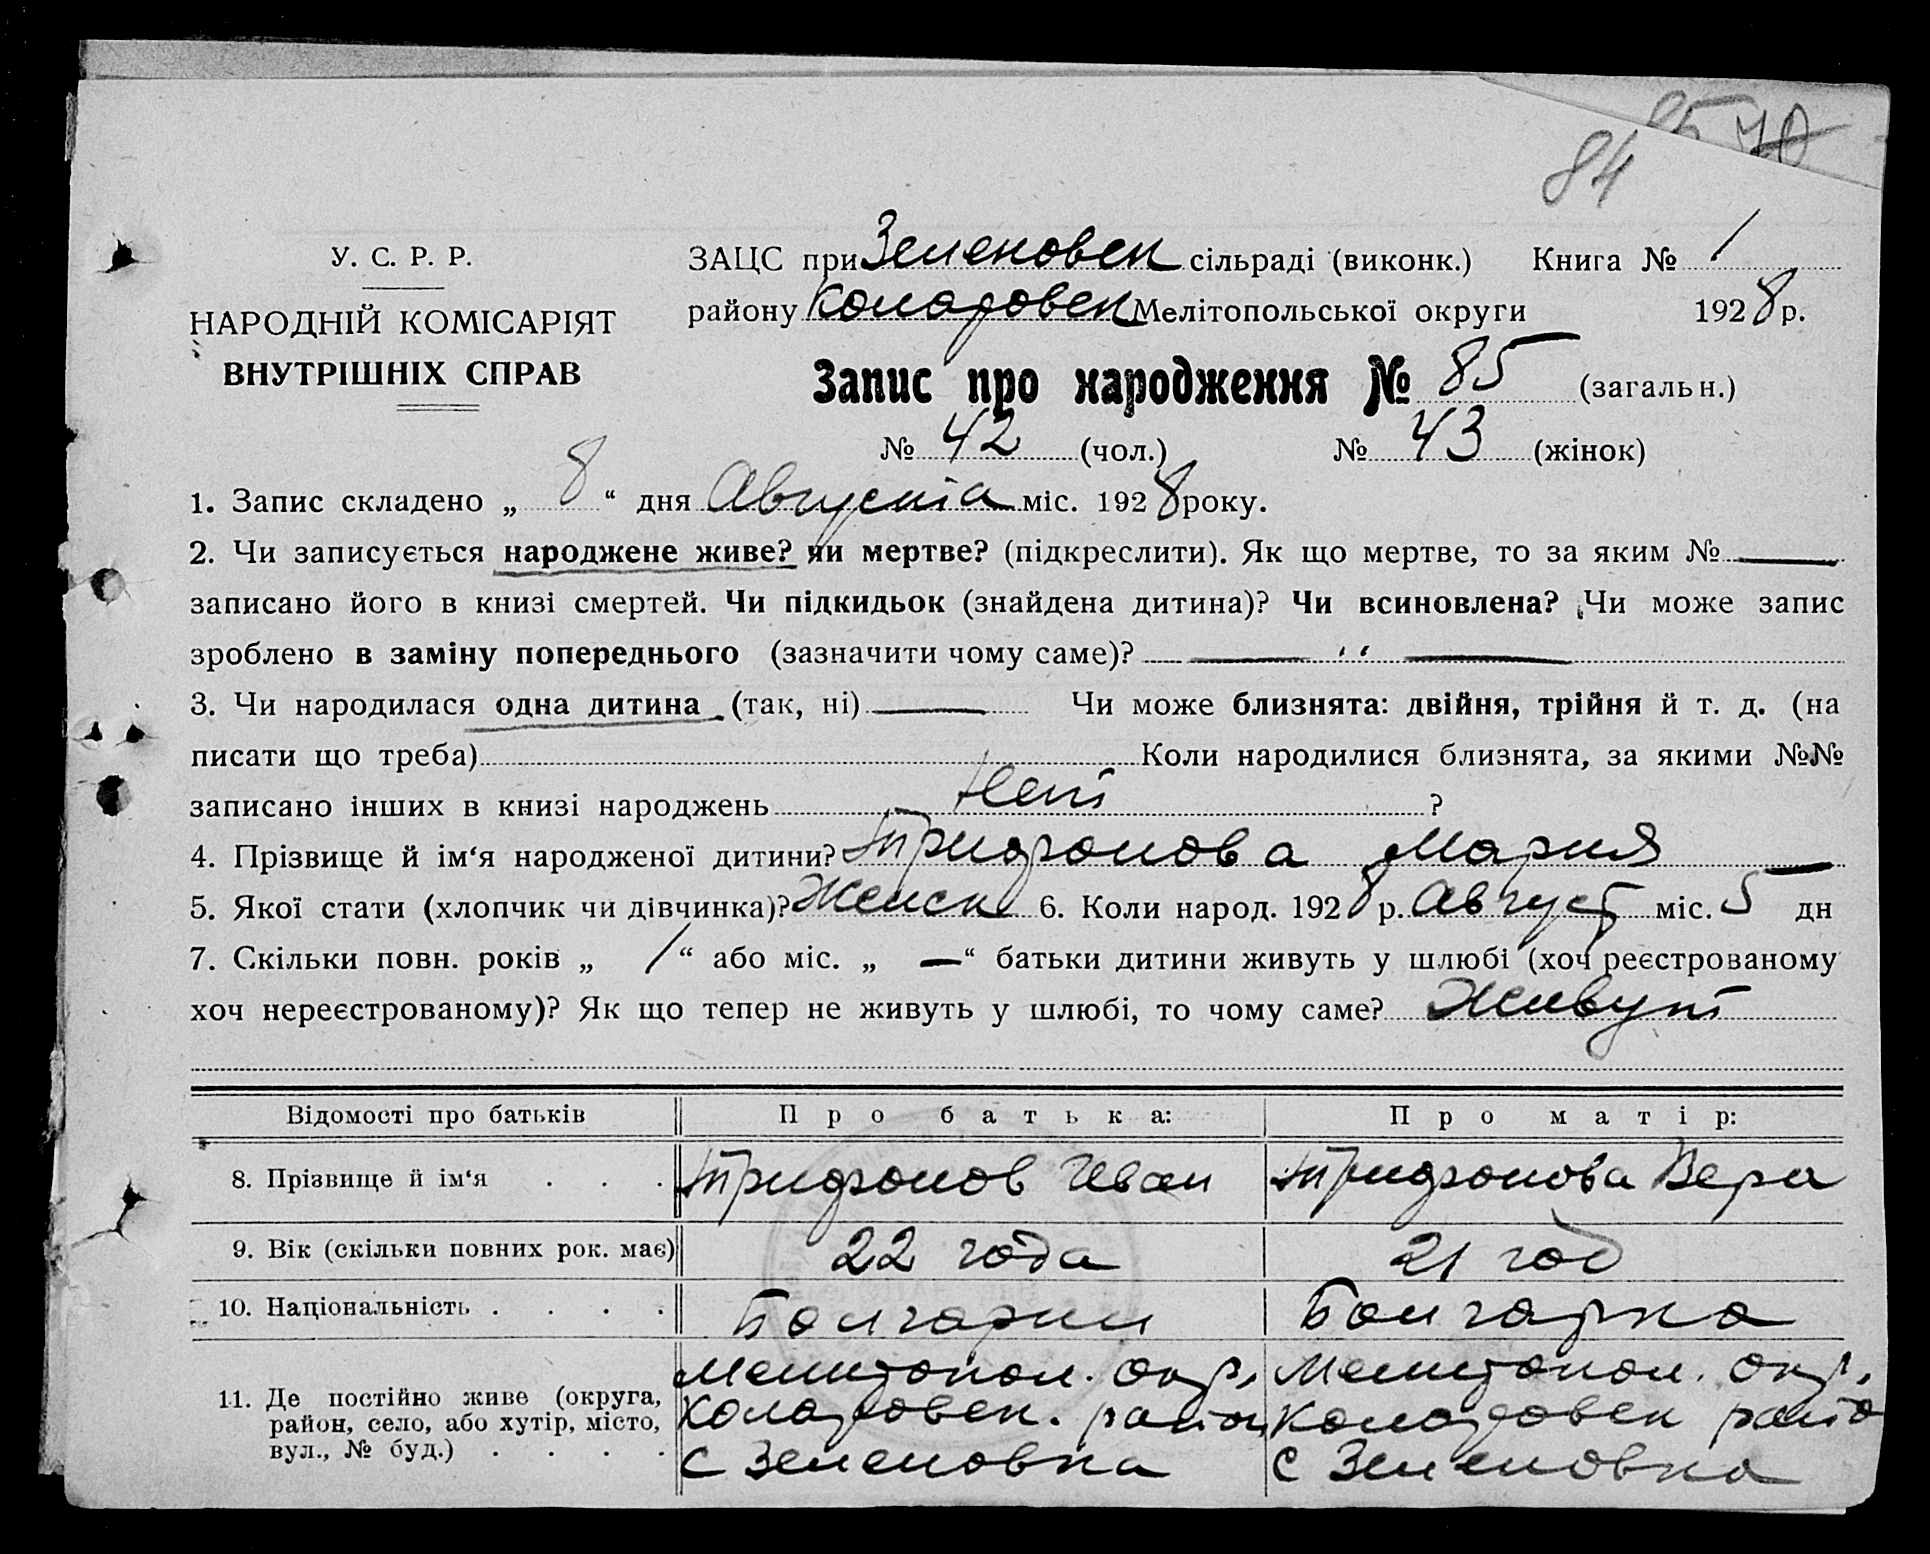 85 70
84
У. С. Р. Р.
НАРОДНІЙ КОМІСАРІЯТ
ВНУТРІШНІХ СПРАВ
ЗАЦС при Зеленовск сільраді (виконк.) Книга № 1
району Коларовск Мелітопольської округи 1928 р.
Запис про народження № 85 (загальн.)
№ 42 (чол.) № 43 (жінок)
1. Запис складено „ 8 “ дня Августа міс. 1928 року.
2. Чи записується народжене живе? чи мертве? (підкреслити). Як що мертве, то за яким № —
записано його в книзі смертей. Чи підкидьок (знайдена дитина)? Чи всиновлена? Чи може запис
зроблено в заміну попереднього (зазначити чому саме)? — ‘‘ —
3. Чи народилася одна дитина (так, ні) — Чи може близнята: двійня, трійня й т. д. (на
писати що треба) Коли народилися близнята, за якими №№
записано інших в книзі народжень Нет ?
4. Прізвище й ім‘я народженої дитини? Трифонова Мария —
5. Якої стати (хлопчик чи дівчинка)? Женск 6. Коли народ. 1928 р. Август міс. 5 дн
7. Скільки повн. років „ 1 “ або міс. „ — “ батьки дитини живуть у шлюбі (хоч реєстрованому
хоч нереєстрованому)? Як що тепер не живуть у шлюбі, то чому саме? Живут
Відомості про батьків Про батька: Про матір:
8. Прізвище й ім‘я . . . Трифонов Иван Трифонова Вера
9. Вік (скільки повних рок. має) 22 года 21 год
10. Національність . . . . Болгарин Болгарка
11. Де постійно живе (округа, Мелитопол. окр, Мелитопол. окр,
район, село, або хутір, місто, Коларовск. район Коларовск райо
вул., № буд.) . . . . с Зеленовка с Зеленовка